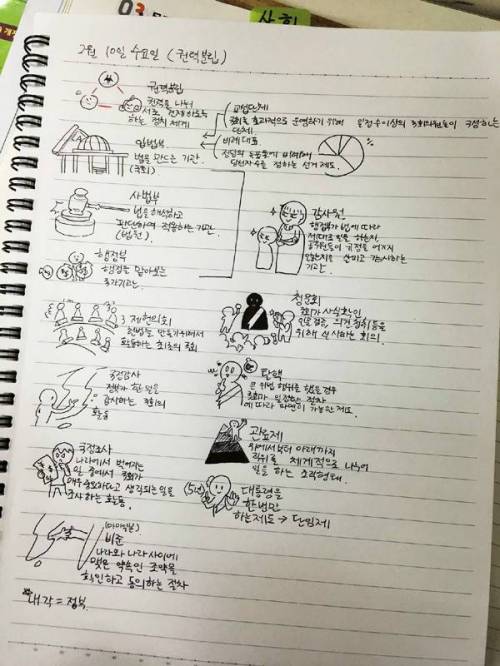 03
사회
2월 10일 수요일 (권력분립)
권력분립
권력을 나눠
서로 견제하도록
하는 정치 체계
교섭단체
국회를 효과적으로 운영하기 위해 일정수이상의 국회의원들이 구성하는
단체.
입법부
법을 만드는 기관.
(국회)
비례대표
정당의 득표율에 비례해
당선자 수를 정하는 선거 제도.
사법부
법을 해석하고
판단하여 적용하는 기관
(법원).
감사원
행정부가 법에 따라
제대로 일을 하는지,
공무원들이 규정을 어기지
않는지를 살피고 감시하는
기관.
행정부
행정을 맡아보는
국가기관.
제헌의회
헌법을 만들기위해서
소집하는 최초의 국회
청문회
국회가 사실확인,
의견 청취등을
위해 실시하는 회의.
국정감사
정부가 한 일을
감사하는 국회의
활동
탄핵
큰 위법 행위를 했을 경우
국회가 일정한 절차
에 따라 파면이 가능한 제도.
국정조사
나라에서 벌어지는
일 중에서 국회가
매우 중요하다고 생각되는 일을
조사 하는 활동.
관료제
위에서부터 아래까지
직위를 체계적으로 나누어
일을 하는 조직형태.
(5년)
대통령을
한번만
하는제도 → 단임제
비준
나라와 나라 사이에
맺은 약속인 조약을
확인하고 동의하는 절차
*내각 = 정부